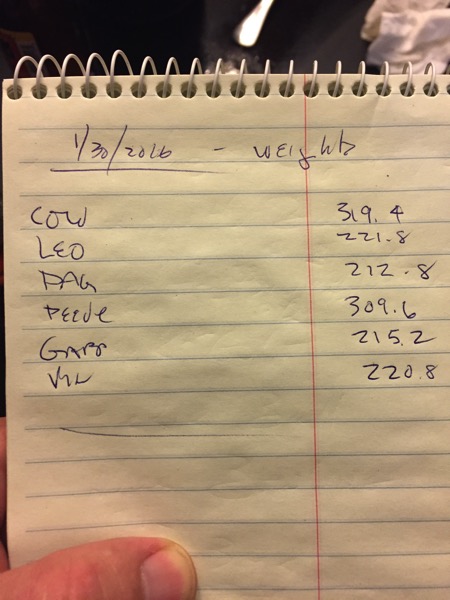 1/30/2016 - weights
COW 319.4
LEO 221.8
DAG 212.8
309.6
GABB 215.2
220.8